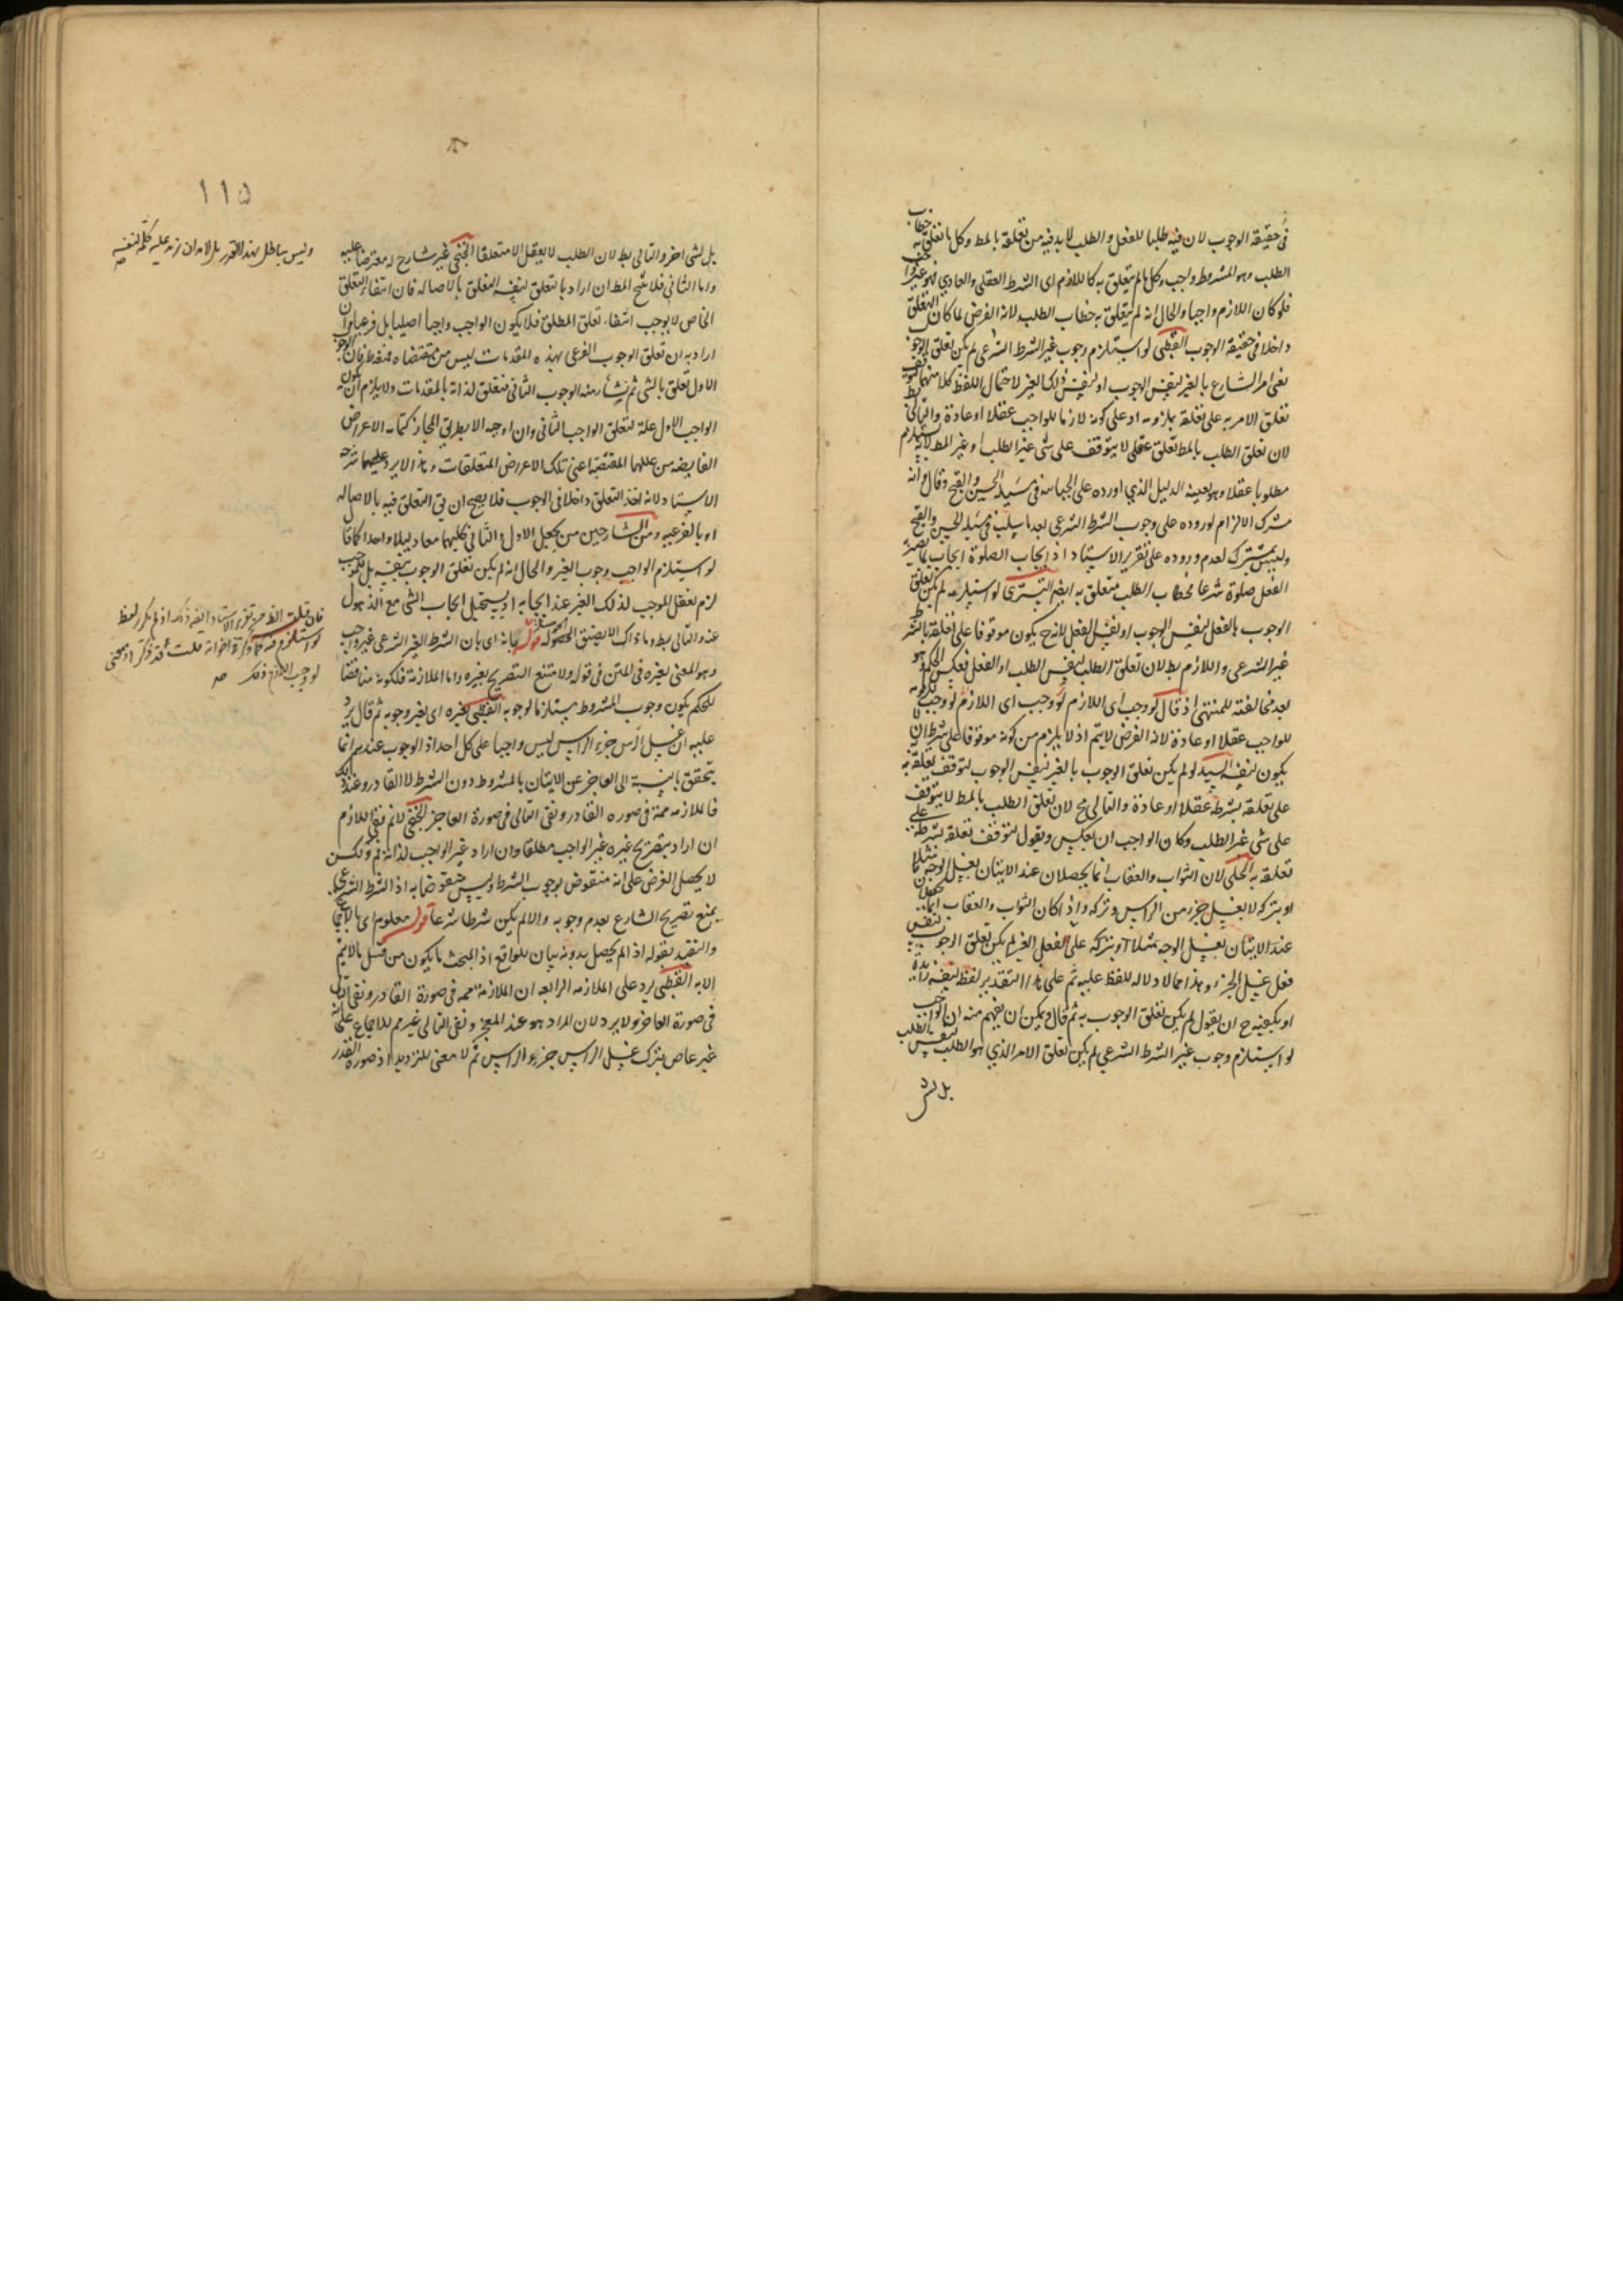 في حقيقة الوجوب لان فيه طلبا للفعل والطلب لابد فيه من تعلقه بالمط وكل ما تعلق به خطاب
الطلب وهو المشروط واجب وكل ما لم يتعلق به كاللازم اى الشرط العقلى والعادى فهو غير واجب
فلو كان اللازم واجبا والحال انه لم يتعلق به خطاب الطلب لانه الفرض لما كان التعلق
داخلا في حقيقة الوجوب القطبى لو استلزم وجوب غير الشرط الشرعى لم يكن تعلق الوجوب
نفى امر الشارع بالغير لنفس الوجوب او لنفس ذلك الغير لاحتمال اللفظ كلا منهما
تعلق الامر به على تعلقه بلزومه او على كونه لازما للواجب عقلا او عادة والتالى بط
لان تعلق الطلب بالمط تعلق عقلى لا يتوقف على شى غير الطلب وغير المط لاستلزام
مطلوبا عقلا وهو بعينه الدليل الذى اورده على الجبائية في مسئلة الحسن والقبح وقال وانه
مشترك الالزام لوروده على وجوب الشرط الشرعى بعد ما سلب في مسئلة الحسن والقبح
وليس بمشترك لعدم وروده على تقرير الاستاد اذ ايجاب الصلوة ايجاب لما يصير
الفعل صلوة شرعا فخطاب الطلب متعلق به ايضا التسترى لو استلزمه لم يكن تعلق
الوجوب بالفعل لنفس الوجوب او لنفس الفعل لانه ح يكون موقوفا على تعلقه بالشرط
غير الشرعى واللازم بط لان تعلق الطلب لنفس الطلب او الفعل فعكس الحكم وهو
بعد مخالفته للمنتهى اذ قال لو وجب اى اللازم لو وجب اى اللازم لوجب لكونه
للواجب عقلا او عادة لانه الفرض لا يتم اذ لا يلزم من كونه موقوفا على شرط ان لا
يكون لنفسه السيد لو لم يكن تعلق الوجوب بالغير لنفس الوجوب لتوقف تعلقه به
على تعلقه بشرطه عقلا او عادة والتالى مح لان تعلق الطلب بالمط لا يتوقف
على شى غير الطلب وكان الواجب ان يعكس ويقول لتوقف تعلقه بشرطه على
تعلقه به الحلى لان الثواب والعقاب انما يحصلان عند الاتيان بغسل الوجه مثلا
او بتركه لا بغسل جزء من الراس وتركه واذا كان الثواب والعقاب انما يحصل
عند الاتيان بغسل الوجه مثلا او بتركه على الفعل الغير لم يكن تعلق الوجوب لنفس
فعل غسل الجزء وهذا مما لا دلالة للفظ عليه ثم على هذا التقدير لفظ لنفسه زائدة
او يكفيه ح ان يقول لم يكن تعلق الوجوب به ثم قال ويمكن ان يفهم منه ان الواجب
لو استلزم وجوب غير الشرط الشرعى لم يكن تعلق الامر الذى هو الطلب لنفس الطلب
بل لشى
١١٥
بل لشى اخر والتالى بط لان الطلب لا يعقل الا متعلقا الخنجى غير شارح له معترضا عليه
واما الثانى فلا ينتج المط ان اراد بالتعلق لنفسه التعلق بالاصالة فان انتفاء التعلق
الخاص لا يوجب انتفاء تعلق المطلق فلا يكون الواجب واجبا اصليا بل فرعيا وان
اراد به ان تعلق الوجوب الفرعى بهذه المقدمات ليس من مقتضاه فغلط فان الوجوب
الاول تعلق بالشى ثم نشأ منه الوجوب الثانى متعلق لذاته بالمقدمات ولا يلزم ان يكون
الواجب الاول علة لتعلق الواجب الثانى وان اوجبه الا بطريق المجاز كما في الاعراض
الفايضة من عللها المقتضية اعنى تلك الاعراض المتعلقات وهذا لا يرد على ما شرحه
الاستاد لانه اخذ التعلق داخلا في الوجوب فلا يصح ان يق التعلق فيه بالاصالة
او بالفرعية ومن الشارحين من يجعل الاول والثانى كليهما معا دليلا واحدا كما قال
لو استلزم الواجب وجوب الغير والحال انه لم يكن تعلق الوجوب بنفسه بل بموجب
لزم تعقل الموجب لذلك الغير عند ايجابه اذ يستحيل ايجاب الشى مع الذهول
عنه والتالى بط وما ذاك الا يضيق الحصوله قوله بانه اى بان الشرط الغير الشرعى غير واجب
وهو المعنى بغيره في المتن في قوله ولامتنع التصريح بغيره واما الملازمة فلكونه مناقضا
للحكم بكون وجوب المشروط مستلزما لوجوبه القطبى بغيره اى بغير وجوبه ثم قال يرد
عليه ان غسل الرأس جزء الراس ليس واجبا على كل احد اذ الوجوب عندهم انما
يتحقق بالنسبة الى العاجز عن الاتيان بالمشروط دون الشرط لا القادر وعند ذلك
فالملازمة ممنوعة في صورة القادر ونفى التالى في صورة العاجز الخنجى لا نم نفى اللازم
ان اراد بتصريح غيره غير الواجب مطلقا وان اراد غير الواجب لذاته فم ولكن
لا يحصل الغرض على انه منقوض بوجوب الشرط وليس منقوضا به اذ الشرط الشرعى
يمنع تصريح الشارع بعدم وجوبه والا لم يكن شرطا شرعا قوله معلوم اى بالاجماع
والتقييد بقوله اذ لم يحصل بدونه بيان للواقع اذ المبحث ما يكون من قبيل ما لا يتم
الا به القطبى يرد على الملازمة الرابعة ان الملازمة ممه في صورة القادر ونفى التالى
في صورة العاجز ولا يرد لان المراد هو عند العجز ونفى التالى غير مم للاجماع على انه
غير عاص بترك غسل الراس جزء الراس ثم لا معنى للترديد اذ صورة القدر
وليس بباطل بهذا التقدير بل لابد ان يزيد عليه كلمة لنفسه صح
فان قلت الظ من تقرير الاستاد ايضا ذلك اذ لم يكرر لفظ
لو استلزم فيه كما ذكره اخواته قلت قد ذكر اذ معنى
لو وجب اللازم ذلك صح